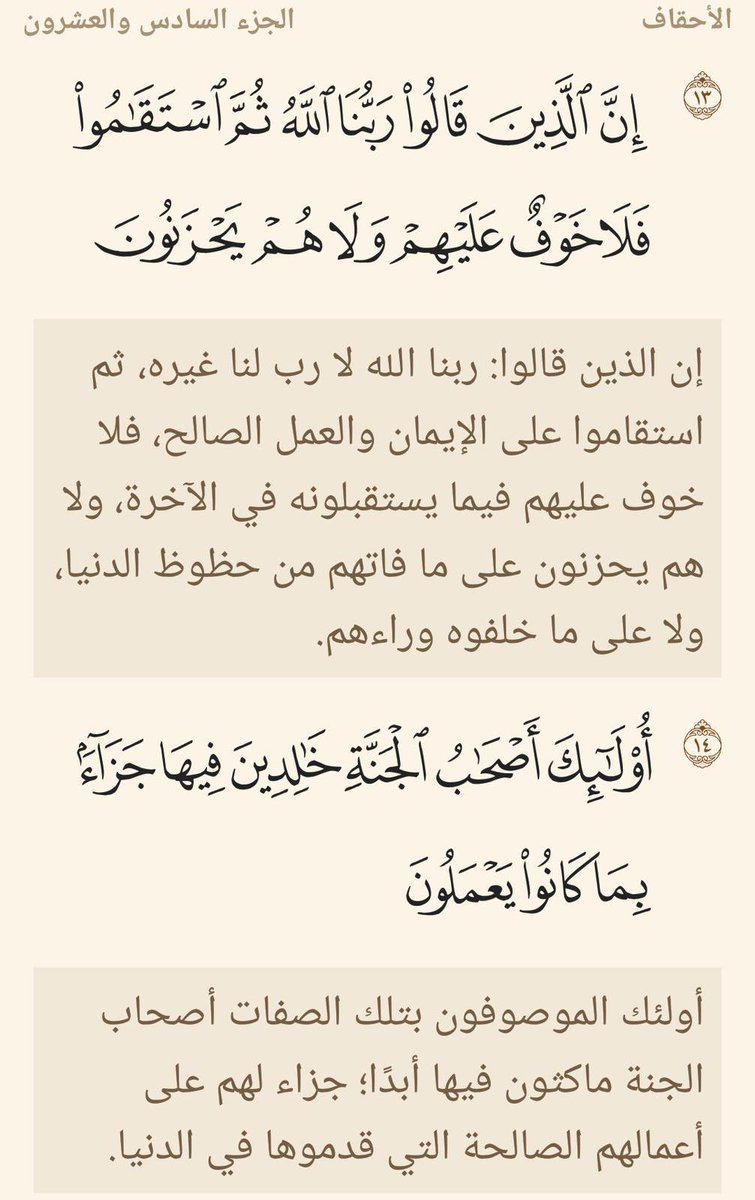 الأحقاف الجزء السادس والعشرون
١٣ إِنَّ ٱلَّذِينَ قَالُوا۟ رَبُّنَا ٱللَّهُ ثُمَّ ٱسْتَقَـٰمُوا۟
فَلَا خَوْفٌ عَلَيْهِمْ وَلَا هُمْ يَحْزَنُونَ
إن الذين قالوا: ربنا الله لا رب لنا غيره، ثم
استقاموا على الإيمان والعمل الصالح، فلا
خوف عليهم فيما يستقبلونه في الآخرة، ولا
هم يحزنون على ما فاتهم من حظوظ الدنيا،
ولا على ما خلفوه وراءهم.
١٤ أُو۟لَـٰٓئِكَ أَصْحَـٰبُ ٱلْجَنَّةِ خَـٰلِدِينَ فِيهَا جَزَآءًۢ
بِمَا كَانُوا۟ يَعْمَلُونَ
أولئك الموصوفون بتلك الصفات أصحاب
الجنة ماكثون فيها أبدًا؛ جزاء لهم على
أعمالهم الصالحة التي قدموها في الدنيا.